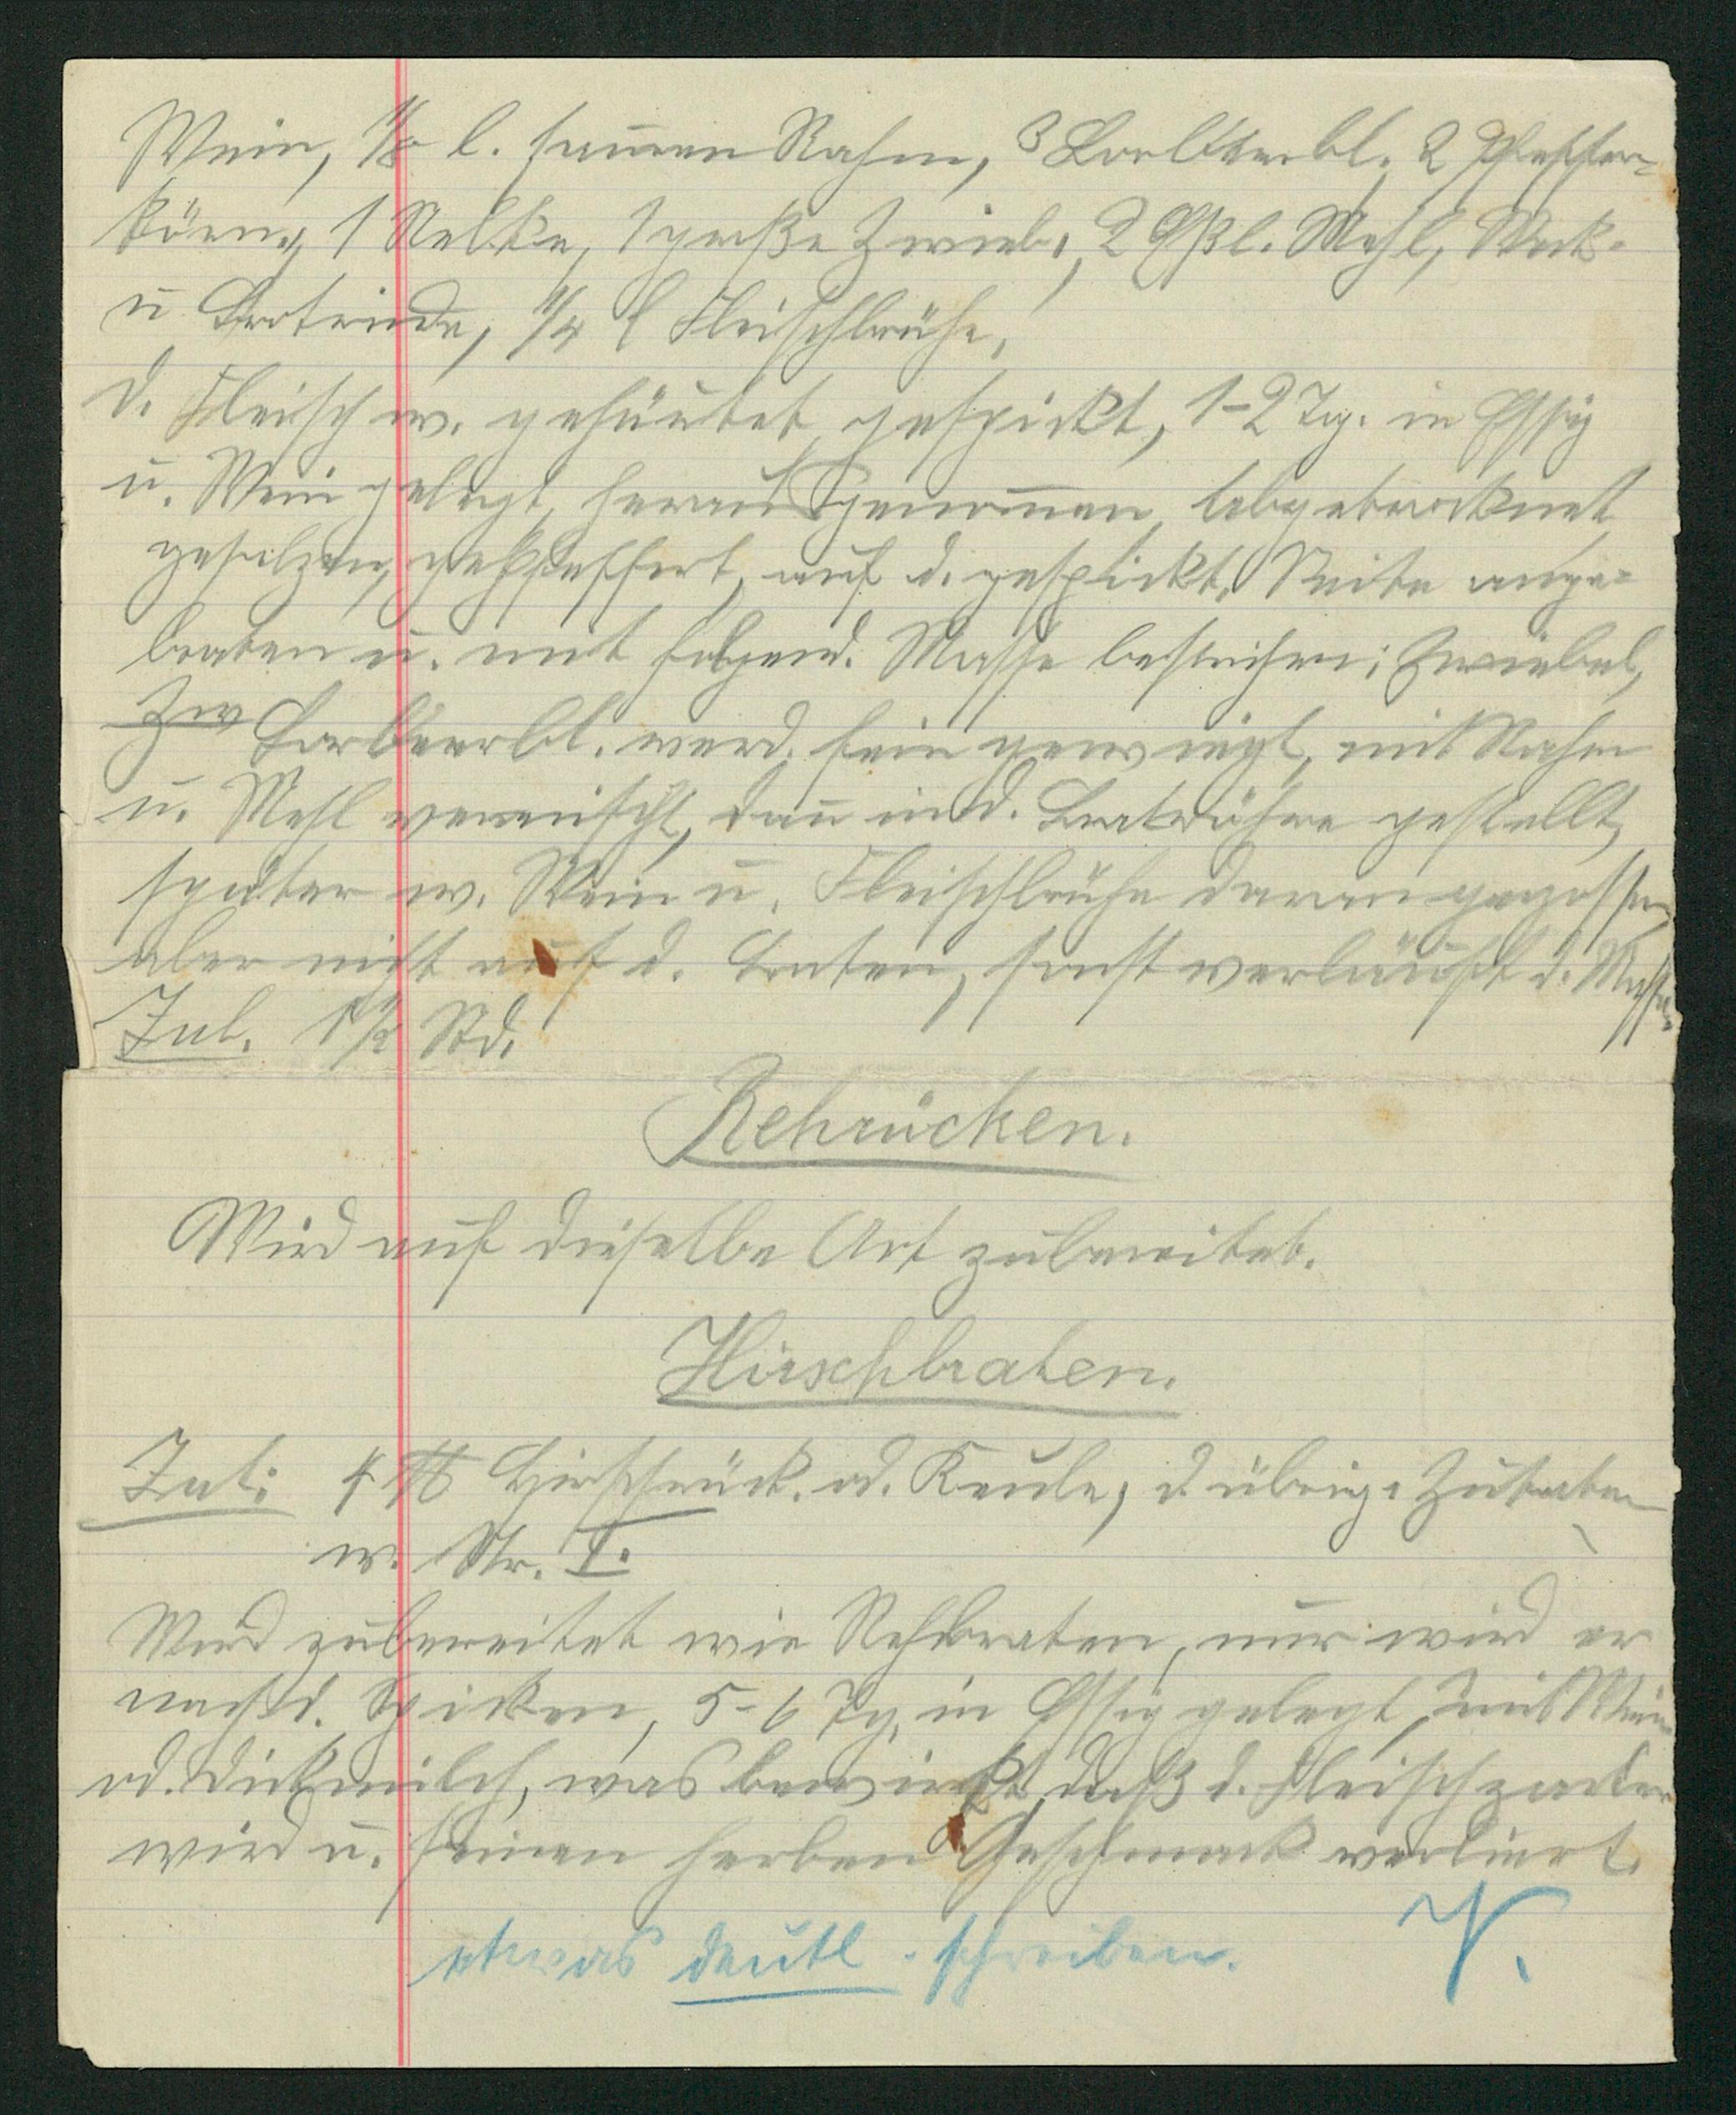 Wein, 1/8 l. sauren Rahm, 3 Lorbeerbl. 2 Pfeffer-
körn., 1 Nelke, 1 große Zwieb., 2 Eßl. Mehl, Weck-
u Brotrinde, 1/4 l Fleischbrühe.
D. Fleisch w. gehäutet, gespickt, 1-2 Tg. in Essig
u. Wein gelegt, herausgenom̅en, abgetrocknet,
gesalzen, gepfeffert, auf d. gespickt. Seite ange-
braten u. mit folgend. Masse bestrichen; Zwiebel,
Zw Lorbeerbl. werd. fein gewiegt, mit Rahm
u. Mehl vermischt, dan̅ in d. Bratröhre gestellt,
später w. Wein u. Fleischbrühe daran gegossen,
aber nicht auf d. Braten, sonst verläuft d. Masse.
Zub. 1 1/2 Std.
Rehrücken.
Wird auf dieselbe Art zubereitet.
Hirschbraten.
Zut: 4 ℔ Hirschrück. od. Keule, d. übrig. Zutaten
w. Nr. I.
Wird zubereitet wie Rehbraten, nur wird er
nach d. Spicken, 5-6 Tg. in Essig gelegt, mit Wein
od. Dickmilch, was bewirkt, daß d. Fleisch zarter
wird u. seinen herben Geschmack verliert.
etwas deutl. schreiben. V.